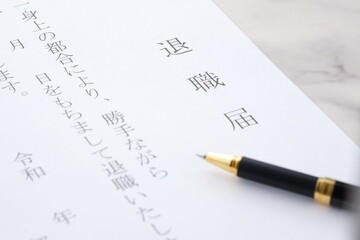 退職届
一身上の都合により、勝手ながら
月 日をもちまして退職いたし
ます。
令和 年